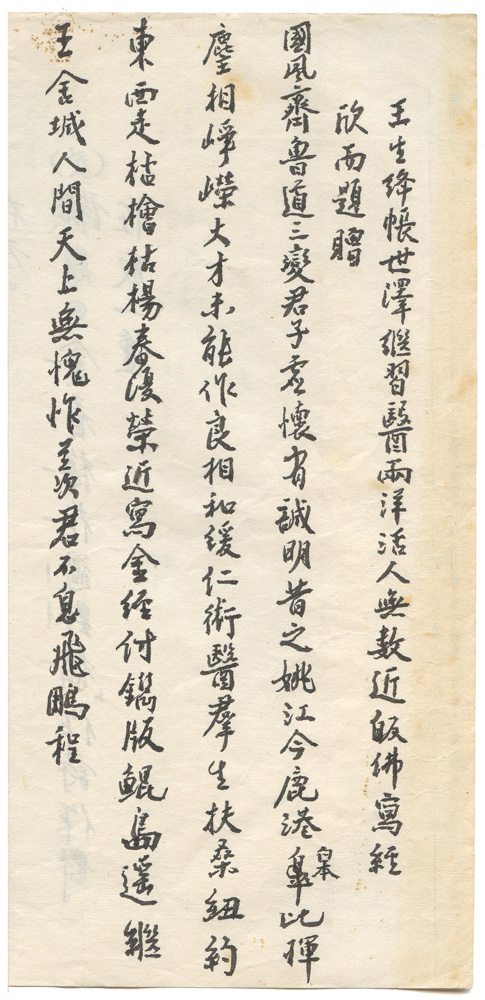 王生絳帳世澤繼習醫兩洋活人無數近皈佛寫經
欣而題贈
國風齊魯道三變君子虛懷有誠明昔之姚江今鹿港皋皋比揮
麈相崢嶸大才未能作良相和緩仁術醫羣生扶桑紐約
東西走枯檜枯楊春復榮近寫金經付鐫版鯤島遥繼
王舍城人間天上無愧怍次君不息飛鵬程